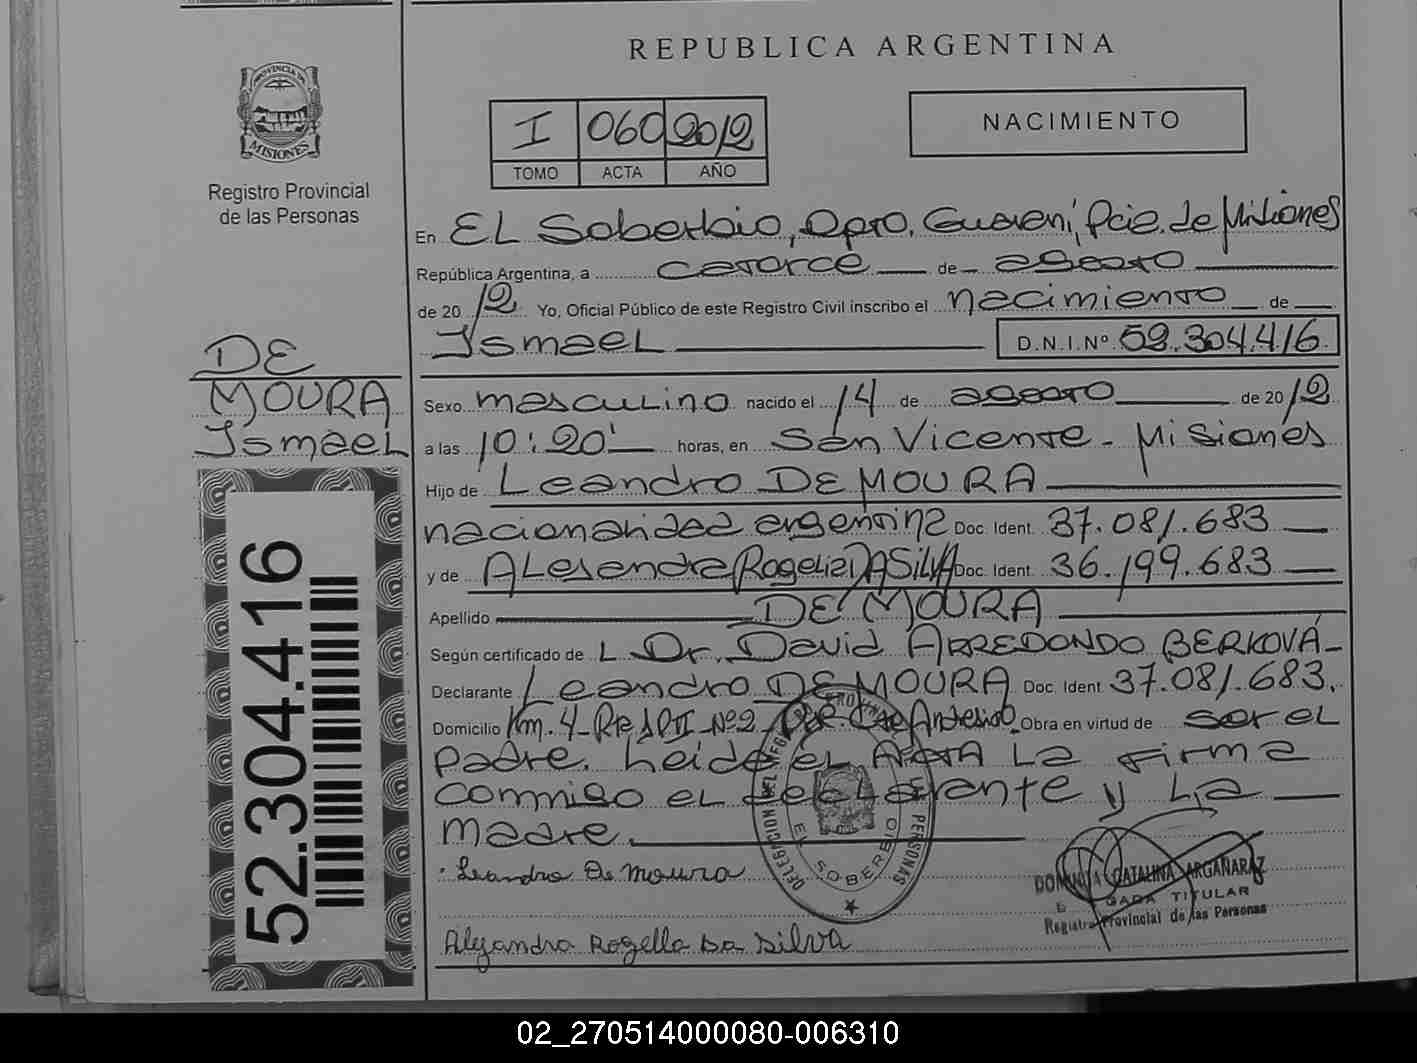 REPUBLICA ARGENTINA
PROVINCIA DE
MISIONES
Registro Provincial
de las Personas
I 060 2012
TOMO ACTA AÑO
NACIMIENTO
En EL Soberbio, Dpto. Guaraní, Pcia. de Misiones
República Argentina, a catorce de agosto
de 2012 Yo, Oficial Público de este Registro Civil inscribo el nacimiento de
Ismael D.N.I.Nº 52.304.416
DE
MOURA
Ismael
52.304.416
Sexo masculino nacido el 14 de agosto de 2012
a las 10:20' horas, en San Vicente - Misiones
Hijo de Leandro DE MOURA
nacionalidad argentina Doc. Ident. 37.081.683
y de ALejandra Rogelia DA SILVA Doc. Ident. 36.199.683
Apellido DE MOURA
Según certificado de L Dr. David ARREDONDO BERKOVÁ-
Declarante Leandro DE MOURA Doc. Ident 37.081.683.
Domicilio Km. 4 Nº2 Obra en virtud de ser el
padre. Leída el Acta La firma
conmigo el declarante y La
madre.
Leandro De Moura
Alejandra Rogelia Da Silva
DELEGACION DEL REGISTRO PROVINCIAL PERSONAS
EL SOBERBIO
CATALINA ARGAÑARAZ
TITULAR
Registro Provincial de las Personas
02_270514000080-006310